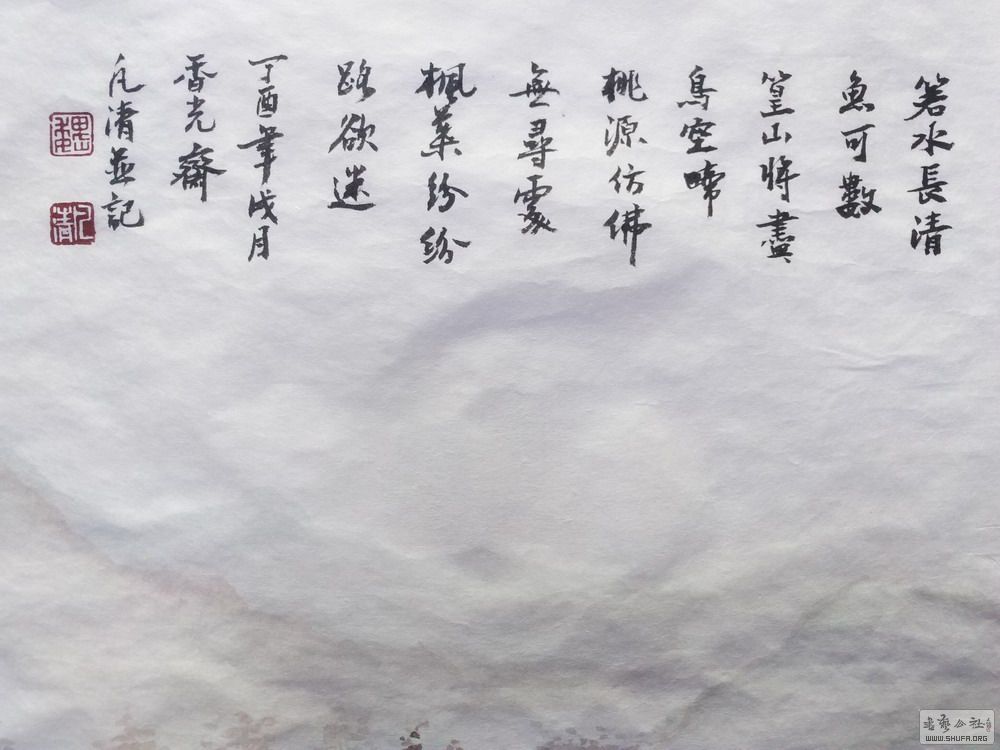 箬水長清
魚可數
篁山將盡
鳥空啼
桃源仿佛
無尋處
楓葉紛紛
路欲迷
丁酉年戌月
香光齋
凡清並記
魏
凡清
WWW.SHUFA.ORG